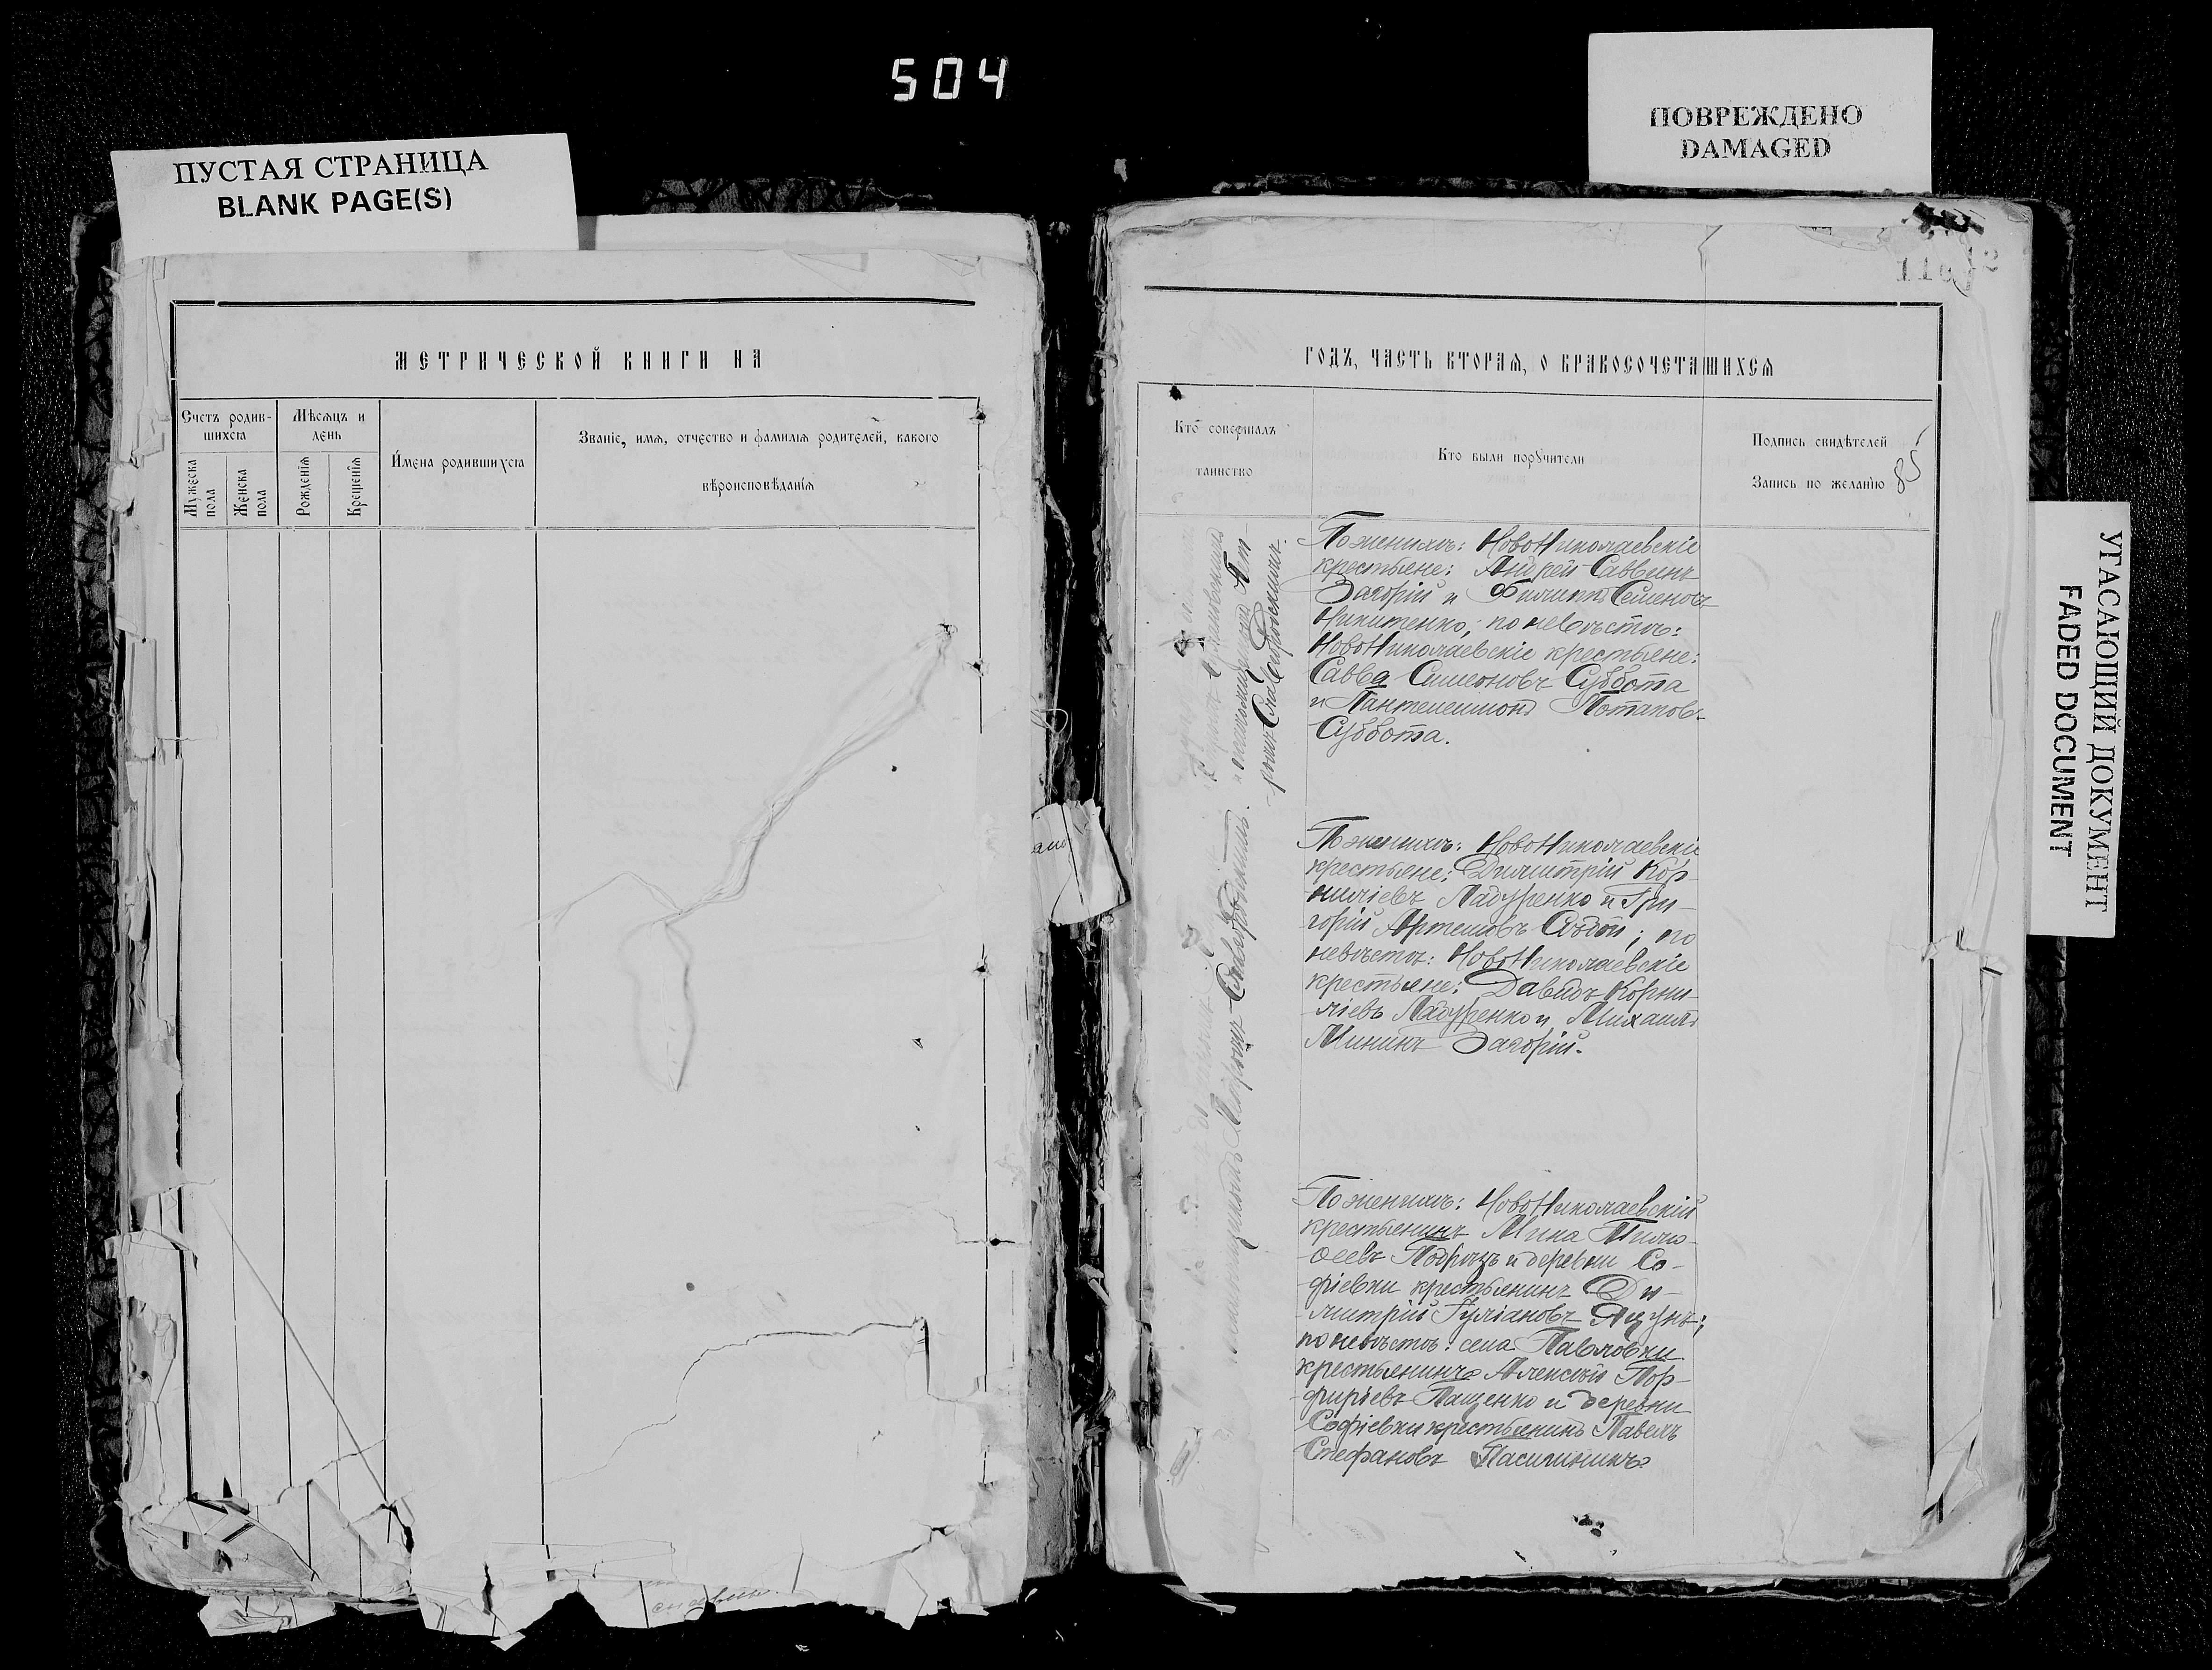 504
ПУСТАЯ СТРАНИЦА
BLANK PAGE(S)
ПОВРЕЖДЕНО
DAMAGED
УГАСАЮЩИЙ ДОКУМЕНТ
FADED DOCUMENT
МЕТРИЧЕСКОЙ КНИГИ НА
Счетъ родив-
шихся
Мѣсяцъ и
день
Мужеска
пола
Женска
пола
Рожденія
Крещенія
Имена родившихся
Званіе, имя, отчество и фамилія родителей, какого
вѣроисповѣданія
ГОДЪ, ЧАСТЬ ВТОРАЯ, О БРАКОСОЧЕТАВШИХСЯ
Кто совершалъ
таинство
Кто были поручители
Подпись свидѣтелей
Запись по желанію
85
По женихѣ: НовоНиколаевскіе
крестьяне: Андрей Саввинъ
Загорій и Филиппъ Семеновъ
Никитенко; по невѣстѣ:
НовоНиколаевскіе крестьяне:
Савва Симеоновъ Суббота
и Пантелеимонъ Потаповъ
Суббота.
По женихѣ: НовоНиколаевскіе
крестьяне: Димитрій Кор-
-ниліевъ Ладуренко и Гри-
горій Артемовъ по
невѣстѣ: НовоНиколаевскіе
крестьяне: Давидъ Корни-
-ліевъ Ладуренко и Михаилъ
Мининъ Загорій.
По женихѣ: НовоНиколаевскій
крестьянинъ Мина Тимо-
-ѳеевъ и деревни Со-
-фіевки крестьянинъ Ди-
-митрій Іуліановъ Яцунъ;
по невѣстѣ: села Павловки
крестьянинъ Алексѣй Пор-
-фирьевъ Пащенко и деревни
Софіевки крестьянинъ Павелъ
Стефановъ Пасичникъ